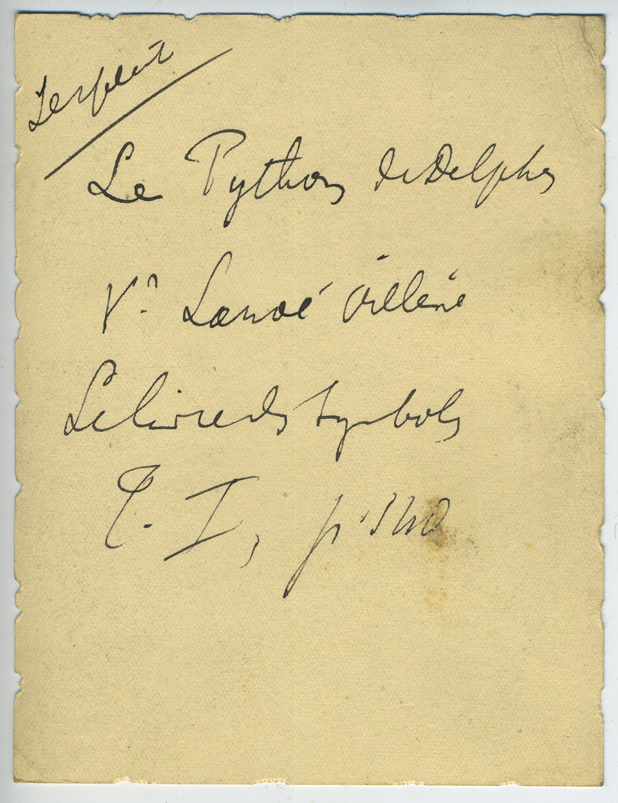 Serpent
Le Python de Delphes
Vr Lanoë Villène
Le livre des Symboles
T. I, p.